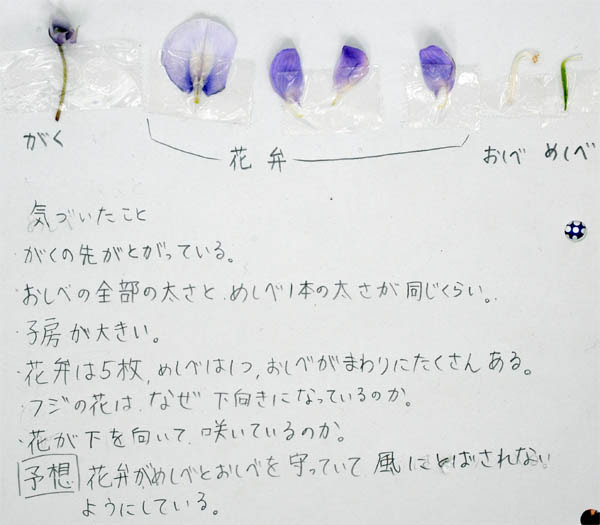 がく
花弁
おしべ めしべ
気づいたこと
・がくの先がとがっている。
・おしべの全部の太さと、めしべ1本の太さが同じくらい。
・子房が大きい。
・花弁は5枚、めしべは1つ、おしべがまわりにたくさんある。
フジの花は、なぜ下向きになっているのか。
・花が下を向いて、咲いているのか。
予想 花弁がめしべとおしべを守っていて風にとばされない
ようにしている。